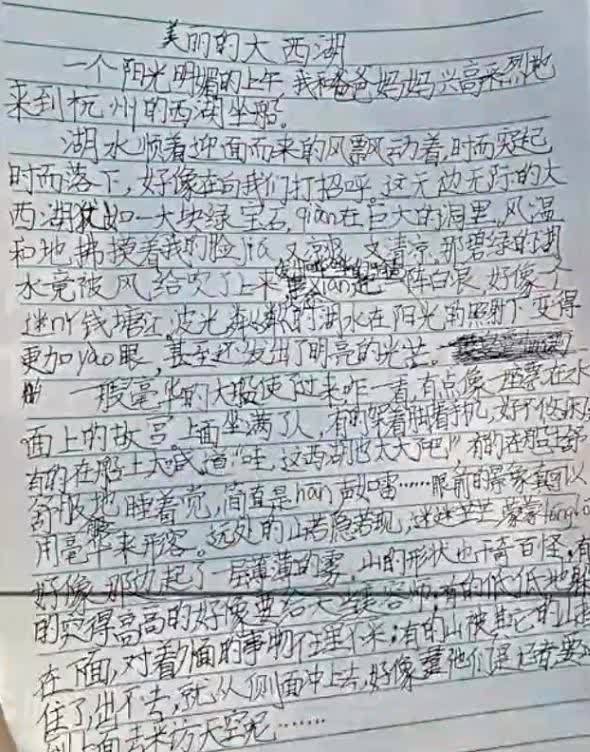 美丽的大西湖
一个阳光明媚的上午,我和爸爸妈妈兴高采烈地
来到杭州的西湖坐船。
湖水顺着迎面而来的风飘动着,时而突起
时而落下,好像在向我们打招呼。这无边无际的大
西湖犹如一大块绿宝石,qiàn在巨大的洞里。风温
和地拂摸着我的脸jiá,又又清凉,那碧绿的湖
水竟被风给吹了上来xiān起一阵白浪,好像一个
迷nǐ钱塘江,波光粼粼的湖水在阳光的照射下变得
更加yào眼,甚至还发出了明亮的光芒。
一艘豪华的大船使了过来咋一看,有点像一座票在水
面上的故宫。上面坐满了人,有的架着脚看手机,好不悠闲
有的在船上大喊道“哇,这西湖也太大了吧”有的在船上舒
舒服地睡着觉,简直是hān声如雷……眼前的景象真可以
用豪华来形容。远处的山若隐若现,迷迷茫茫蒙蒙lónglóng
好像那边起了一层薄薄的雾。山的形状也千奇百怪,有
的突得高高的好像要给天当美容师;有的低低地躲
在下面,对着外面的事物不理不采;有的山被其它的山挡
住了,出不去,就从侧面冲上去,好像他们是记者,要
到上面去采访天空呢……